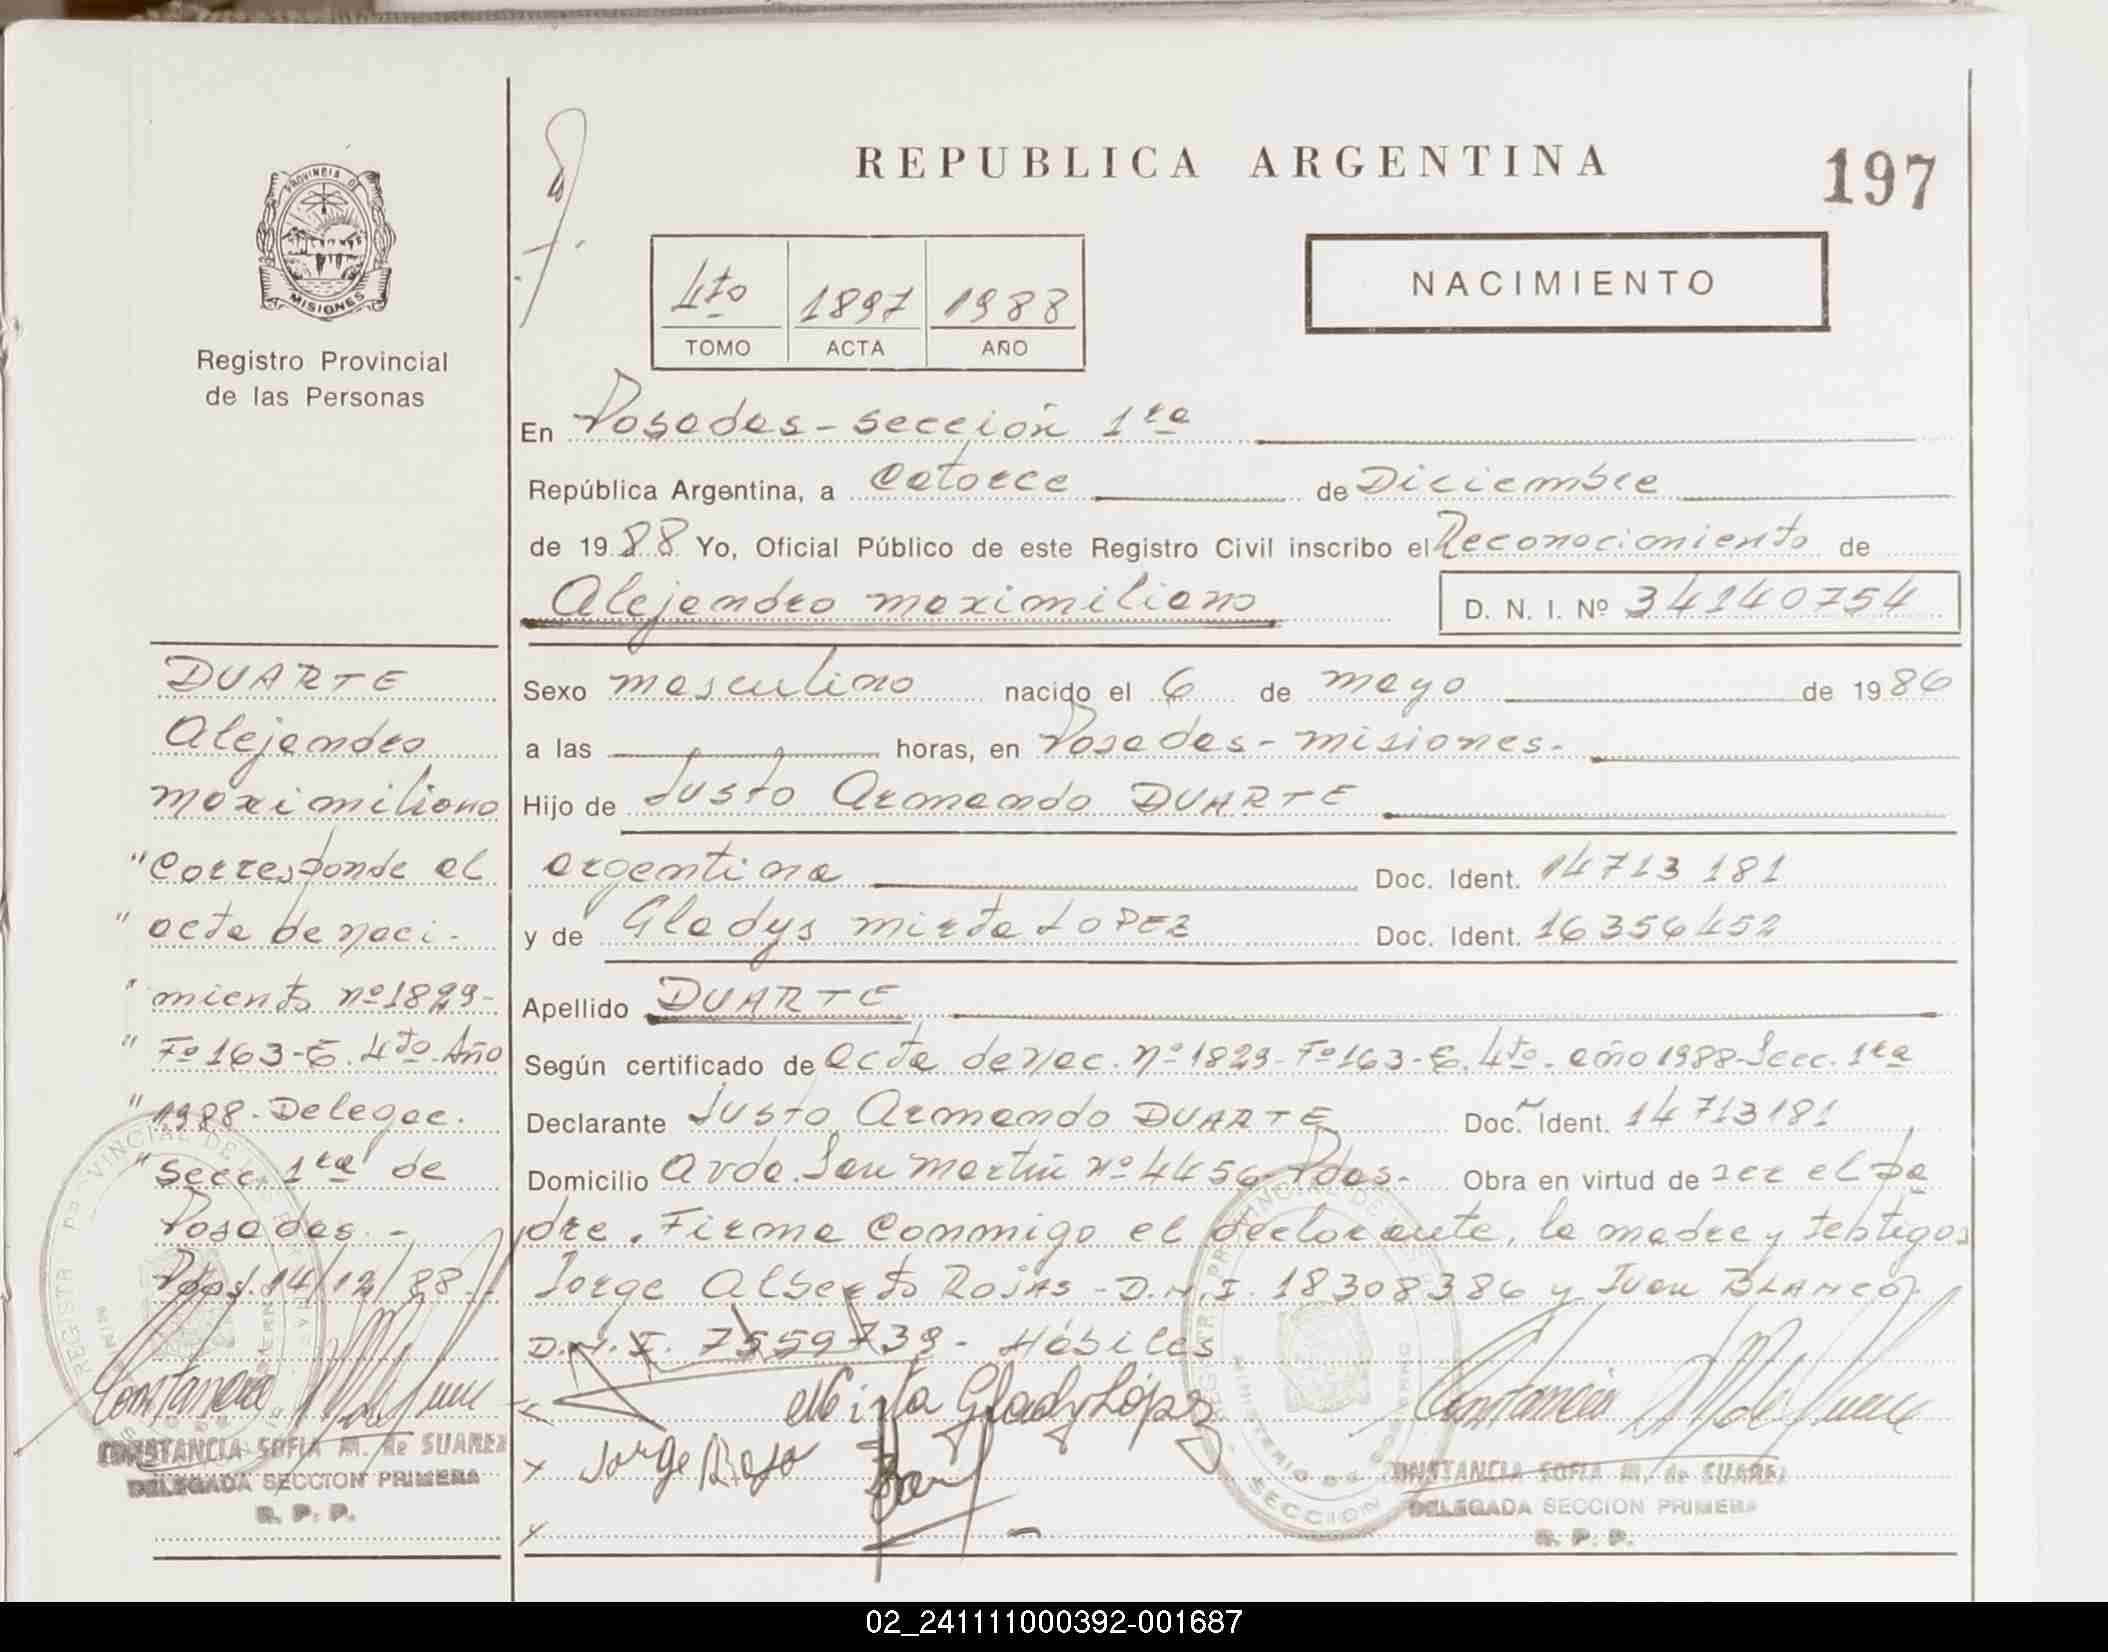 PROVINCIA DE
MISIONES
Registro Provincial
de las Personas
REPUBLICA ARGENTINA
197
NACIMIENTO
4to 1897 1988
TOMO ACTA AÑO
En Posadas - sección 1ra
República Argentina, a Catorce de Diciembre
de 1988 Yo, Oficial Público de este Registro Civil inscribo el Reconocimiento de
Alejandro maximiliano D. N. I. Nº 34140754
Sexo masculino nacido el 6 de mayo de 1986
a las horas, en Posadas - misiones.
Hijo de Justo Armando DUARTE
argentina Doc. Ident. 14713 181
y de Gladys mirta LOPEZ Doc. Ident. 16356452
Apellido DUARTE
Según certificado de acta de nac. nº 1829 - Fº 163 - 4to. año 1988 - Secc. 1ra
Declarante Justo Armando DUARTE Doc. Ident. 14713181
Domicilio Avda. San Martín nº 4456 - Pdas. - Obra en virtud de ser el pa
dre. Firma Conmigo el declarante, la madre y testigos
Jorge Alberto ROJAS - D.N.I. 18308386 y Juan BLANCO
D.N.I. 7559739 - Hábiles
Mirta Gladys López
Jorge Rojas
CONSTANCIA SOFIA M. de SUAREZ
DELEGADA SECCION PRIMERA
R. P. P.
DUARTE
Alejandro
maximiliano
"Corresponde al
" acta de naci-
" miento nº 1829-
" Fº 163 - 4to. Año
" 1988 - Delegac.
" Secc. 1ra de
Posadas. -
Pdas. 14/12/88.
CONSTANCIA SOFIA M. de SUAREZ
DELEGADA SECCION PRIMERA
R. P. P.
02_241111000392-001687